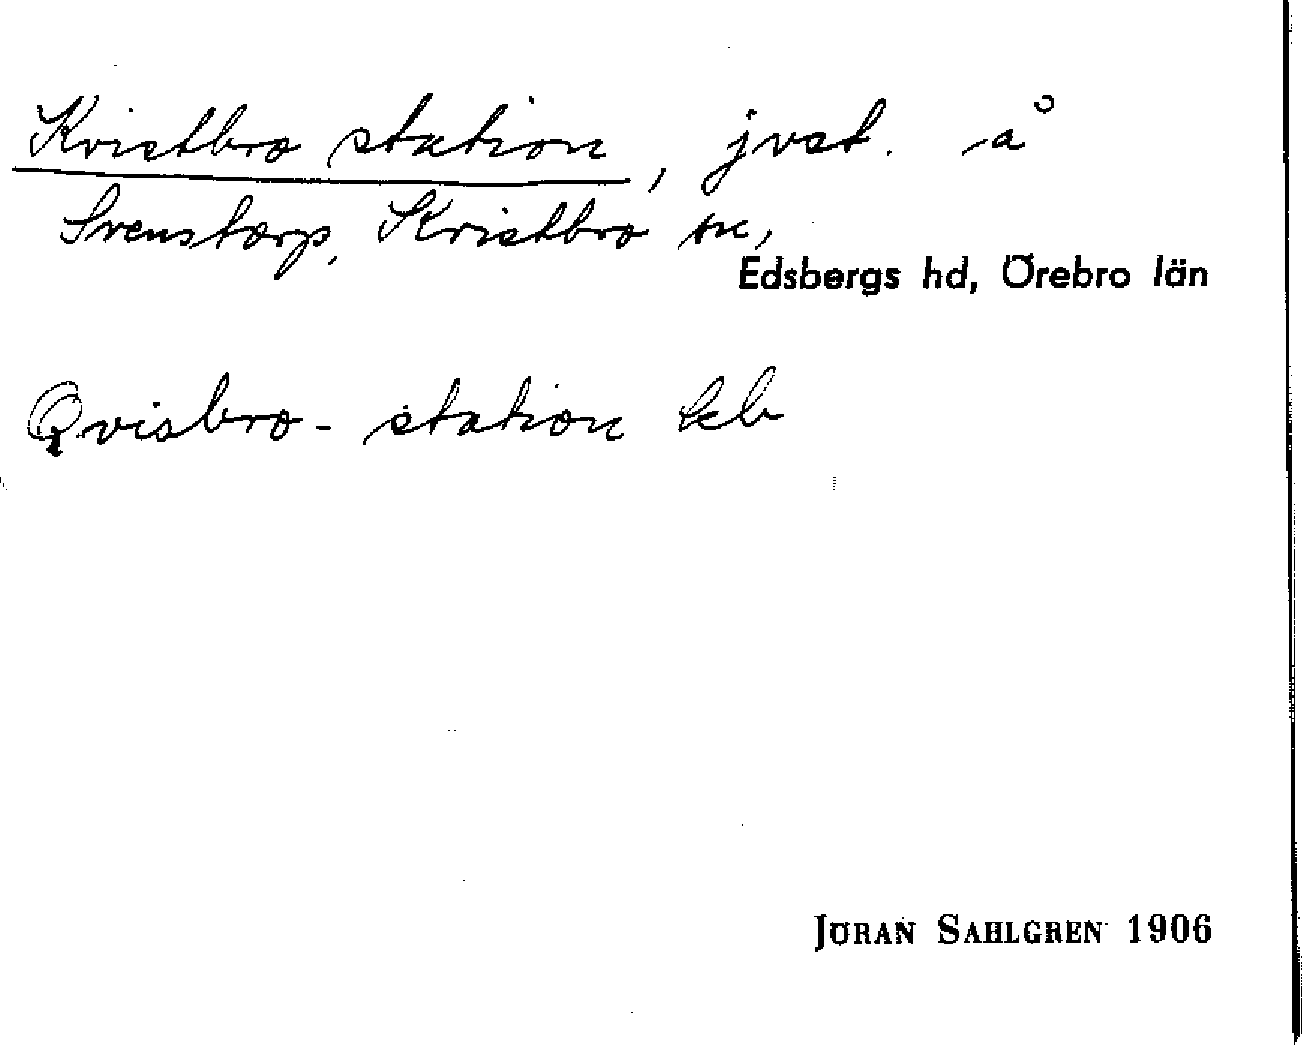 Kvistbro station, jvst. å
Svenstorp, Kvistbro sn,
Edsbergs hd, Örebro län
Qvisbro-station
JÖRAN SAHLGREN 1906